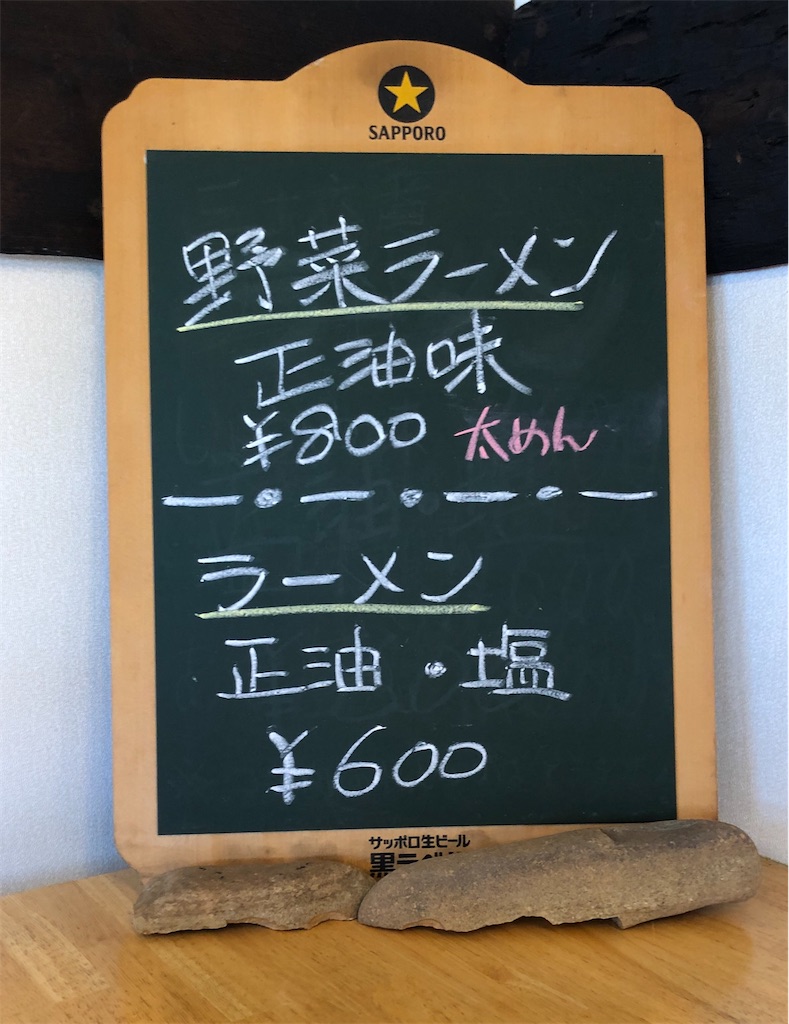 SAPPORO
野菜ラーメン
正油味
¥800 太めん
ラーメン
正油・塩
¥600
サッポロ生ビール
黒ラベル